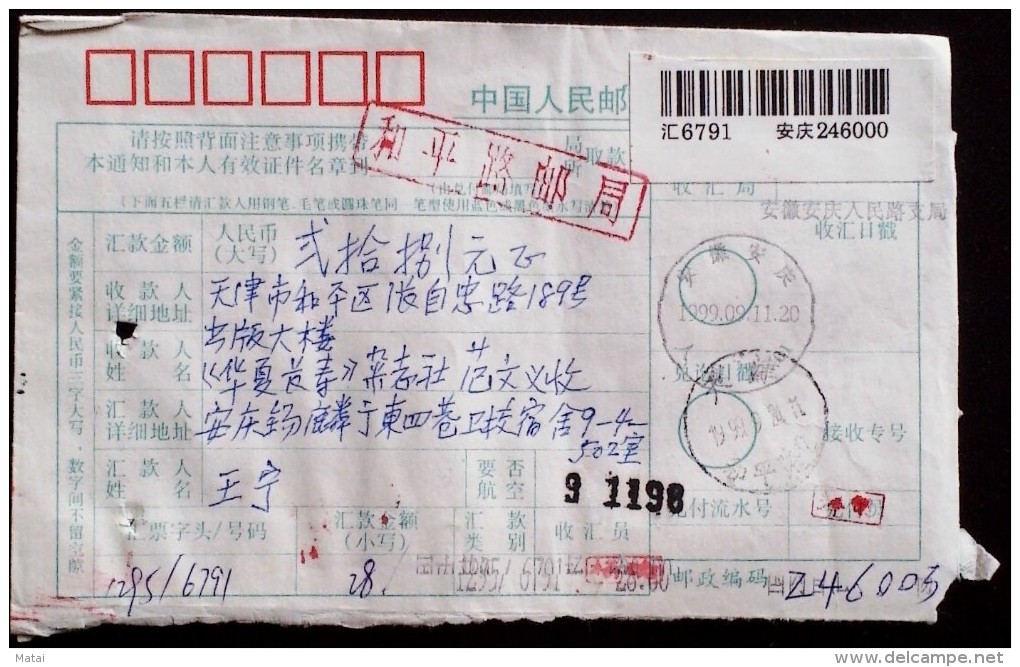 中国人民邮
汇6791 安庆246000
请按照背面注意事项携带
本通知和本人有效证件名章到
局
所
取款
和平路邮局
收汇局
(下面五栏请汇款人用钢笔、毛笔或圆珠笔同一笔型使用蓝色或黑色
安徽安庆人民路支局
收汇日戳
金额要紧接人民币三字大写，数字间不留空隙
汇款金额
人民币
(大写)
贰拾捌元正
收款人
详细地址
天津市和平区张自忠路189号
出版大楼
收款人
姓名
《华夏长寿》杂志社 范文义收
汇款人
详细地址
安庆锡麟于東四巷卫校宿舍9-4-
502室
汇款人
姓名
王宁
要否
航空
9 1198
安徽安庆
1999.09.11.20
天津
兑付日戳
接收专号
兑付流水号
汇票字头/号码
汇款金额
(小写)
汇款
类别
收汇员
1295/6791
28.
1295/ 6791
28.00
邮政编码
246003
Matai
delcampe.net